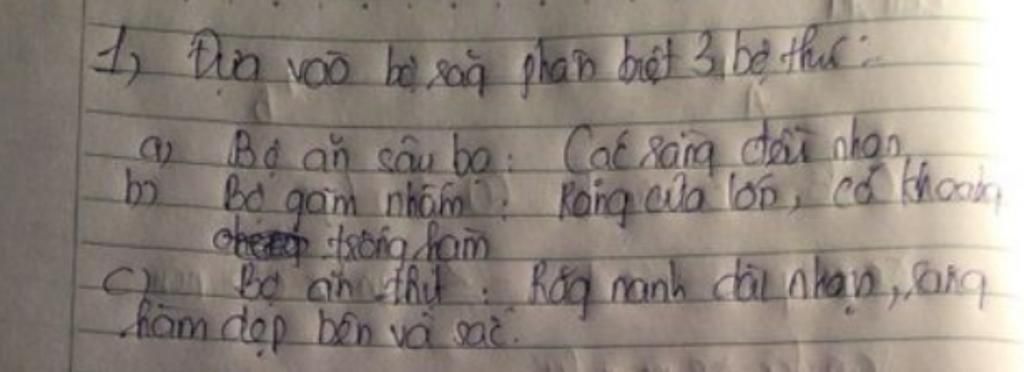 1) Dựa vào bộ răng phân biệt 3 bộ thú:
a) Bộ ăn sâu bọ: Các răng đều nhọn
b) Bộ gặm nhấm: Răng cửa lớn, có khoảng
trống hàm
c) Bộ ăn thịt: Răng nanh dài nhọn, răng
hàm dẹp bên và sắc.